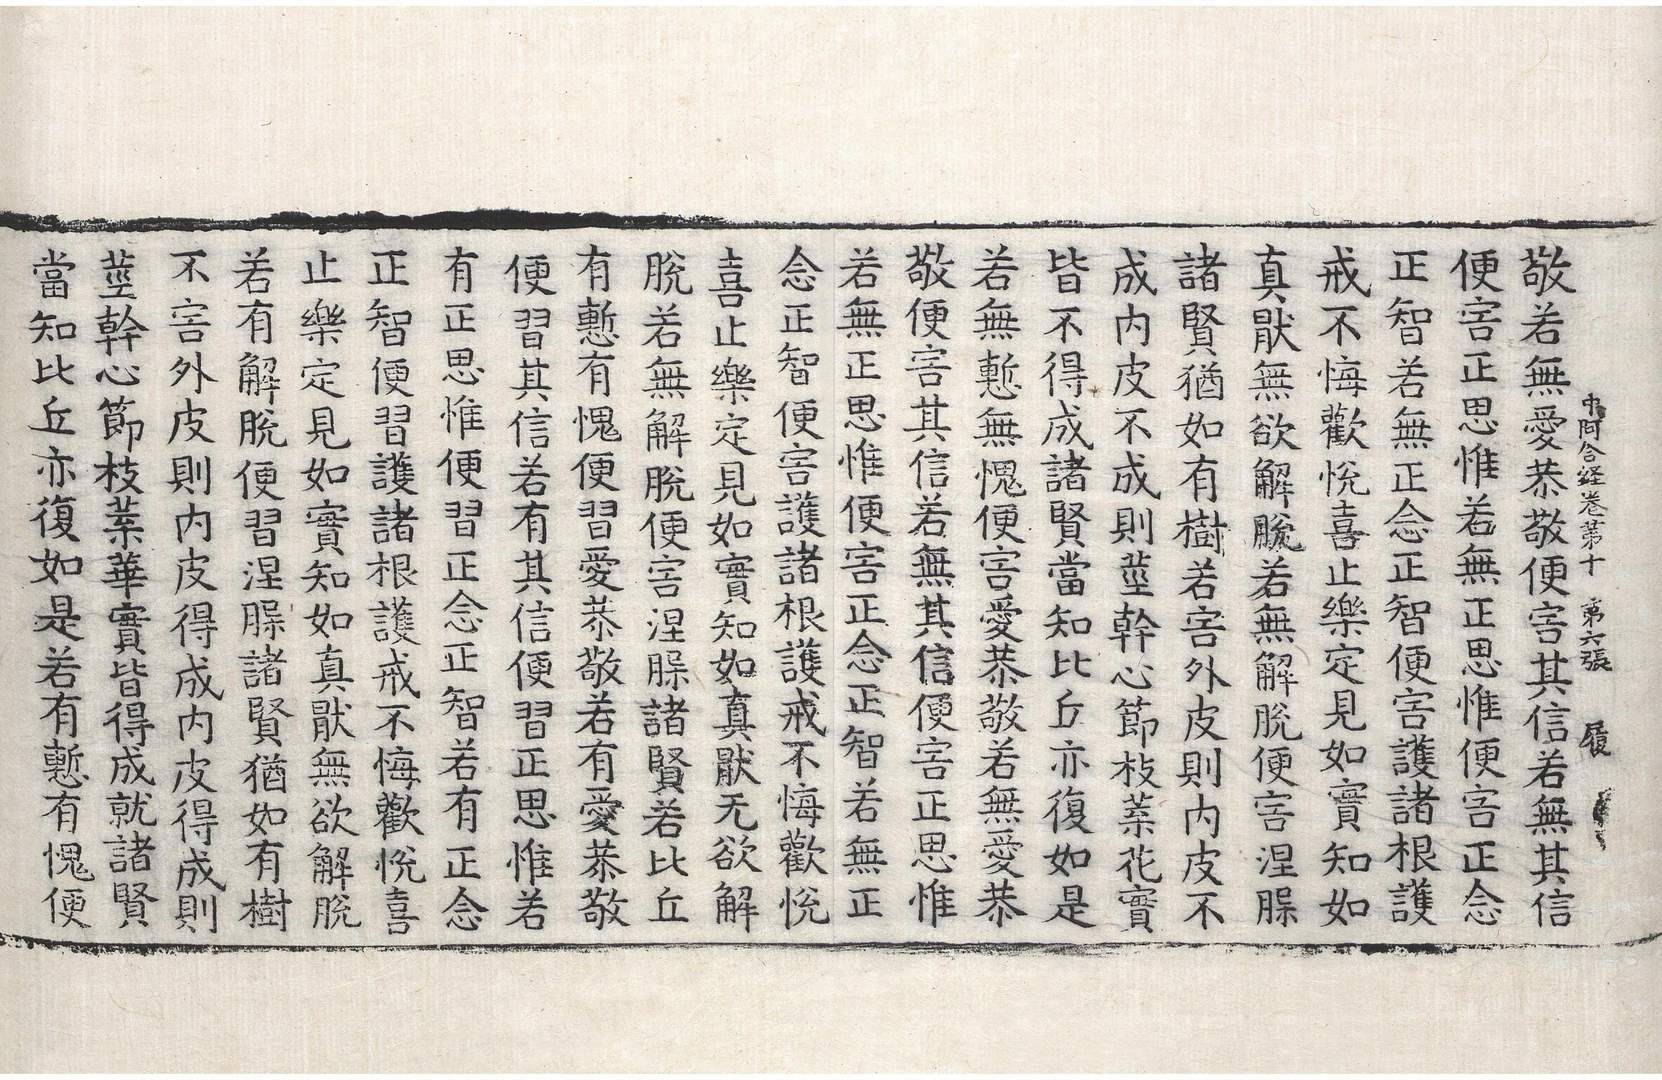 中阿含経巻第十　第六張　履
敬若無愛恭敬便害其信若無其信
便害正思惟若無正思惟便害正念
正智若無正念正智便害護諸根護
戒不悔歡悅喜止樂定見如實知如
真猒無欲解脫若無解脫便害涅槃
諸賢猶如有樹若害外皮則內皮不
成內皮不成則莖幹心節枝葉花實
皆不得成諸賢當知比丘亦復如是
若無慙無愧便害愛恭敬若無愛恭
敬便害其信若無其信便害正思惟
若無正思惟便害正念正智若無正
念正智便害護諸根護戒不悔歡悅
喜止樂定見如實知如真猒无欲解
脫若無解脫便害涅槃諸賢若比丘
有慙有愧便習愛恭敬若有愛恭敬
便習其信若有其信便習正思惟若
有正思惟便習正念正智若有正念
正智便習護諸根護戒不悔歡悅喜
止樂定見如實知如真猒無欲解脫
若有解脫便習涅槃諸賢猶如有樹
不害外皮則內皮得成內皮得成則
莖幹心節枝葉華實皆得成就諸賢
當知比丘亦復如是若有慙有愧便